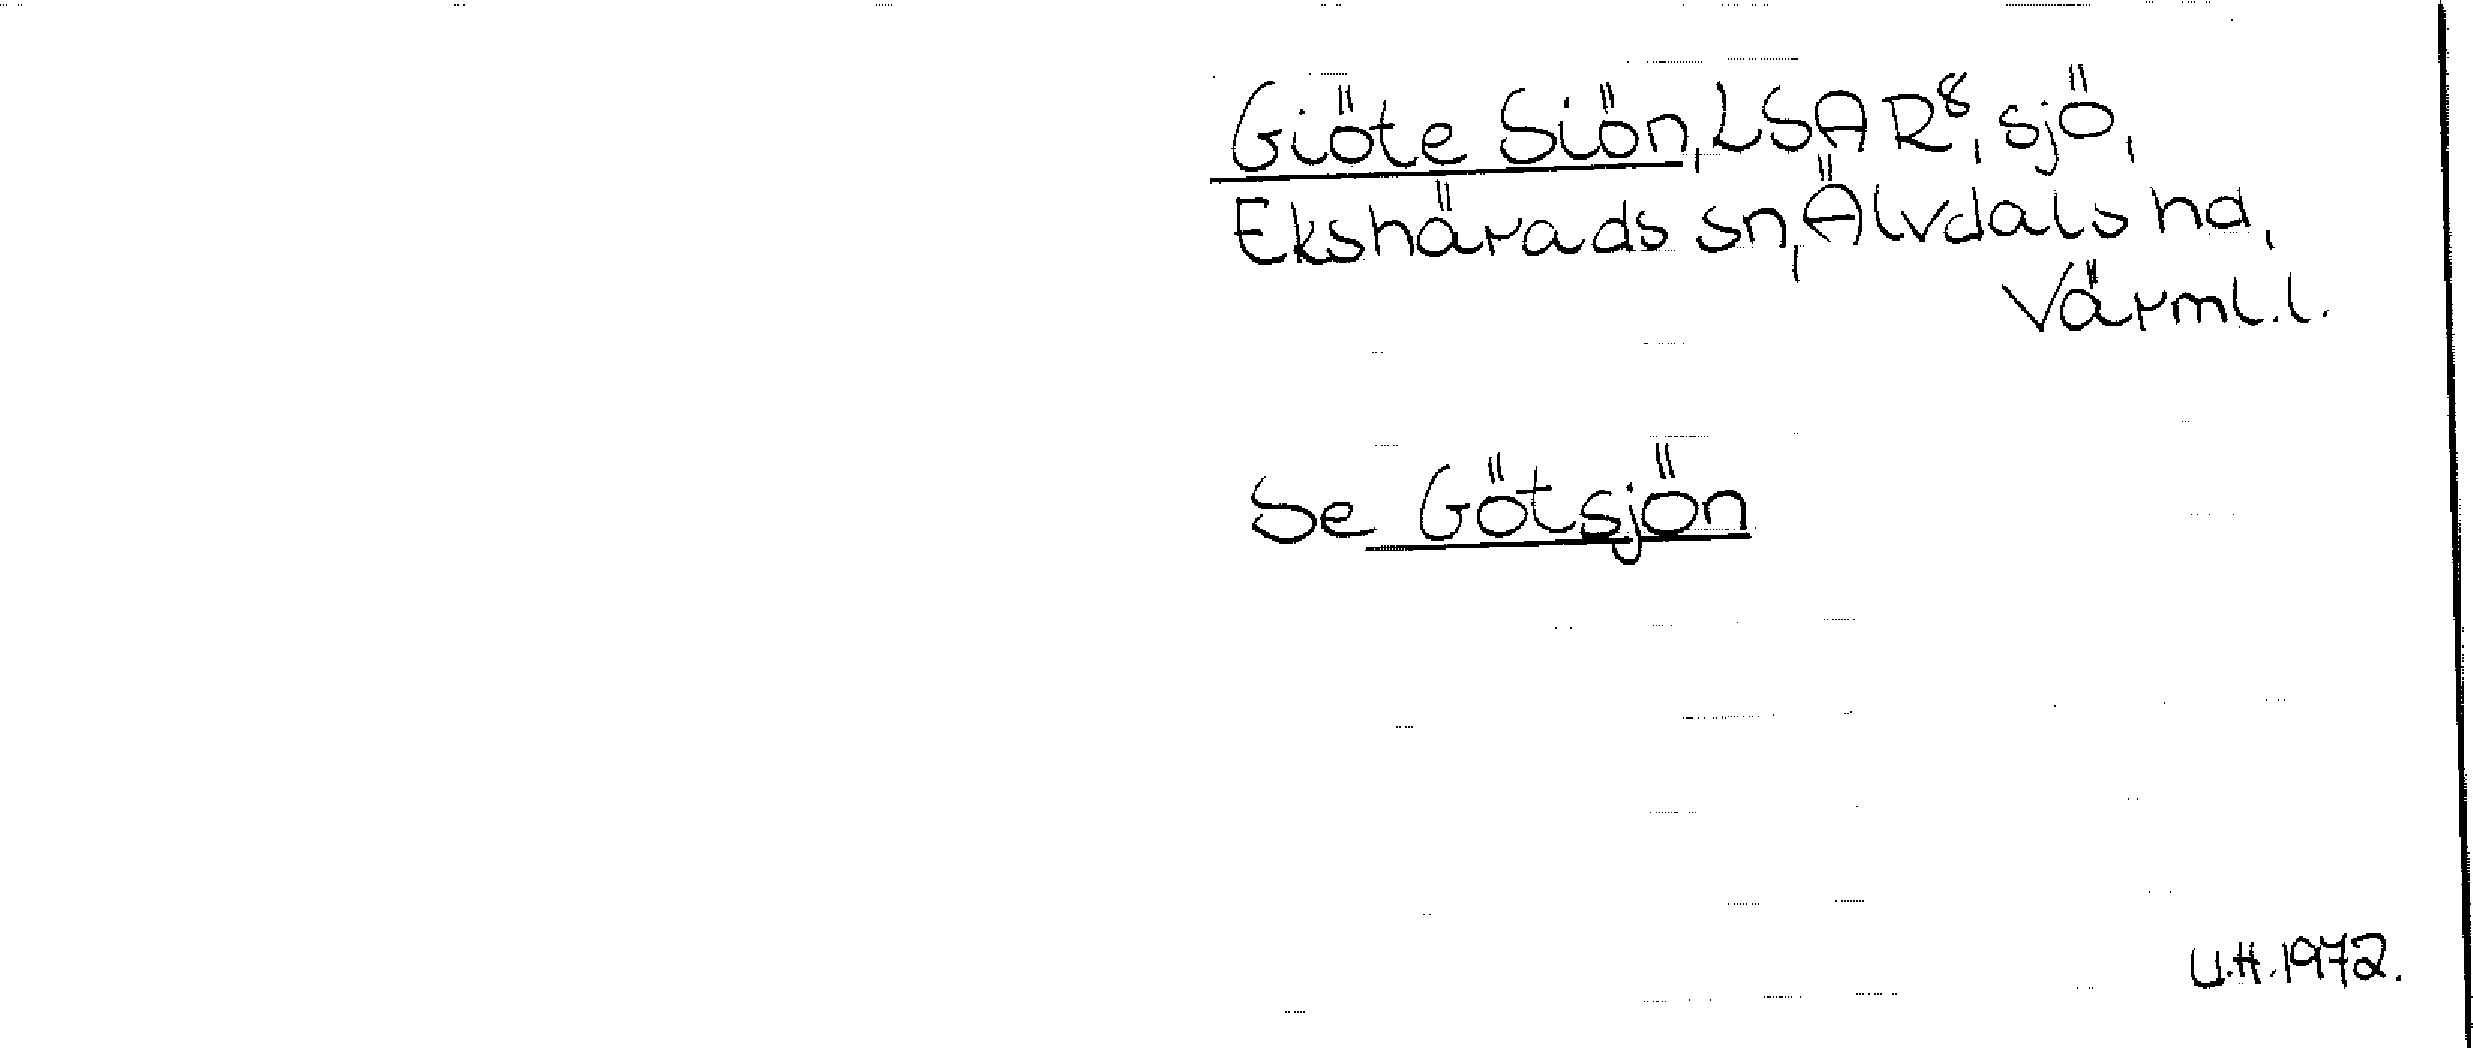 Giöte Siön, LSA R⁸, sjö,
Ekshärads sn, Älvdals hd,
Värml. l.
Se Götsjön
U.H. 1972.